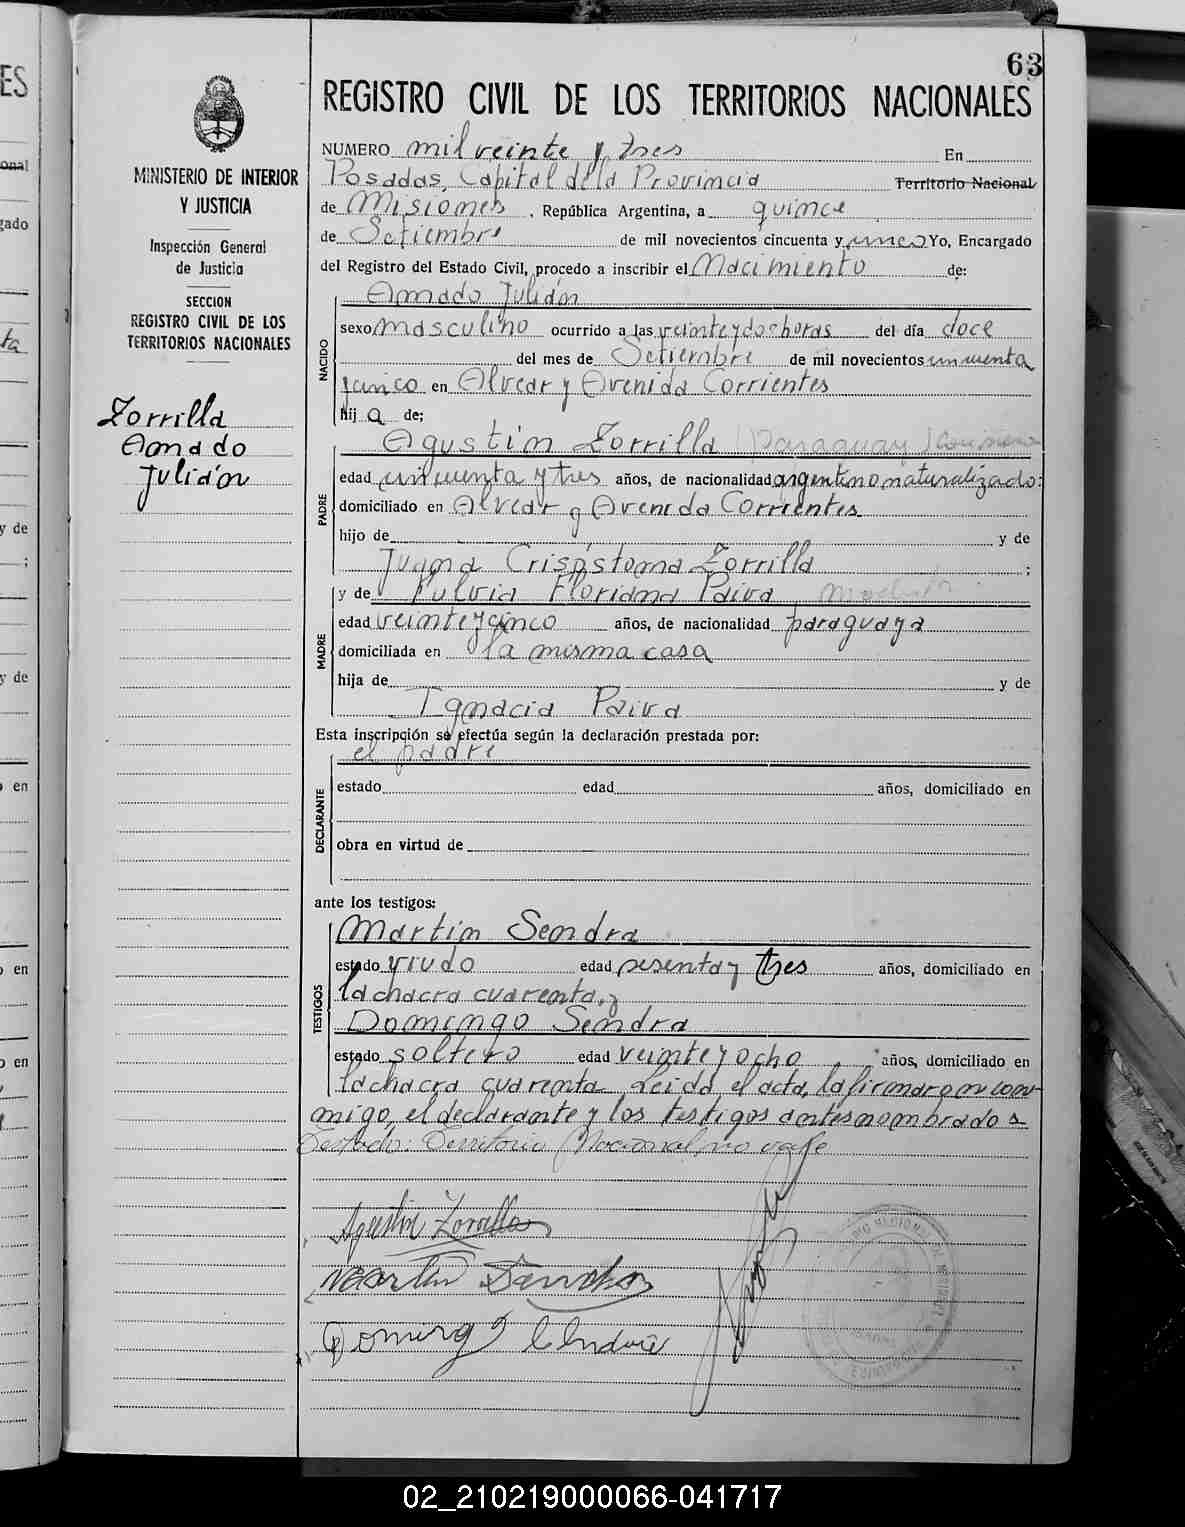 63
REGISTRO CIVIL DE LOS TERRITORIOS NACIONALES
MINISTERIO DE INTERIOR
Y JUSTICIA
Inspección General
de Justicia
SECCION
REGISTRO CIVIL DE LOS
TERRITORIOS NACIONALES
Zorrilla
Amado
Julián
NUMERO mil veinte y tres En
Posadas, Capital de la Provincia Territorio Nacional
de Misiones, República Argentina, a quince
de Setiembre de mil novecientos cincuenta y Yo, Encargado
del Registro del Estado Civil, procedo a inscribir el Nacimiento de:
NACIDO
Amado Julián
sexo masculino ocurrido a las veinte y dos horas del día doce
del mes de Setiembre de mil novecientos
en Alvear y Avenida Corrientes
hij a de;
PADRE
Agustin Zorrilla (Paraguay)
edad cincuenta y tres años, de nacionalidad argentino naturalizado:
domiciliado en Alvear y Avenida Corrientes
hijo de y de
Juana Crisóstoma Zorrilla ;
MADRE
y de Fulvia Floriana Paiva
edad veinte y cinco años, de nacionalidad paraguaya
domiciliada en la misma casa
hija de y de
Ignacia Paiva
Esta inscripción se efectúa según la declaración prestada por:
DECLARANTE
el padre
estado edad años, domiciliado en
obra en virtud de
ante los testigos:
TESTIGOS
Martin Sendra
estado viudo edad sesenta y tres años, domiciliado en
la chacra cuarenta, y
Domingo Sendra
estado soltero edad veinte y ocho años, domiciliado en
la chacra cuarenta Leida el acta, la firmaron con-
migo, el declarante y los testigos antes nombrados
Testado: Territorio Nacional no vale
Agustin Zorrilla
Martin
Domingo
02_210219000066-041717